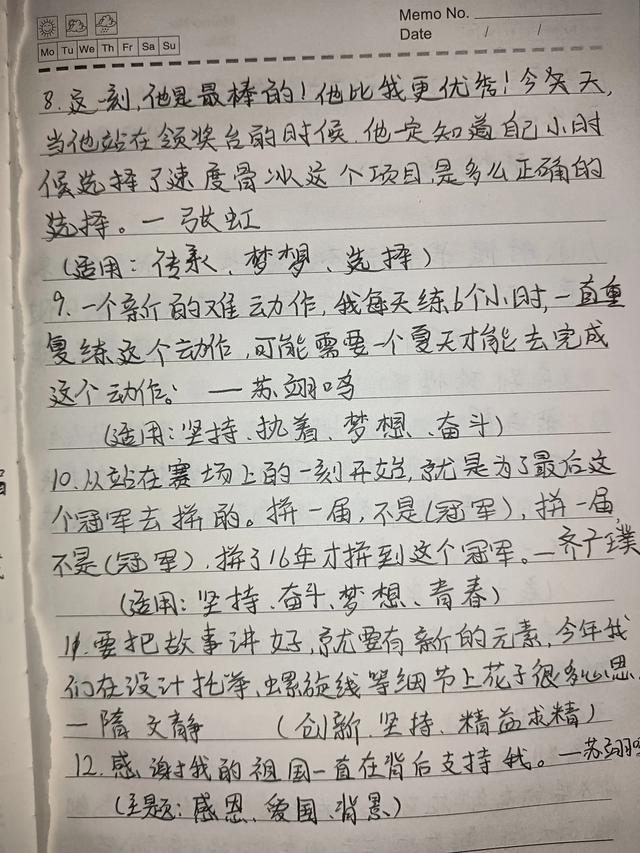 Memo No.
Date / /
Mo Tu We Th Fr Sa Su
8.这一刻,他是最棒的!他比我更优秀!今天,
当他站在领奖台的时候,他一定知道自己小时
候选择了速度滑冰这个项目,是多么正确的
选择。一张虹
(适用:传承、梦想、选择)
9.一个新的难动作,我每天练6个小时,一直重
复练这个动作,可能需要一个夏天才能去完成
这个动作。 —苏翊鸣
(适用:坚持、执着、梦想、奋斗)
10.从站在赛场上的一刻开始,就是为了最后这
个冠军去拼的。拼一届,不是(冠军),拼一届,
不是(冠军),拼了16年才拼到这个冠军。—齐广璞
(适用:坚持、奋斗、梦想、青春)
11.要把故事讲好,就要有新的元素,今年我
们在设计托举、螺旋线等细节上花了很多心思.
—隋文静 (创新、坚持、精益求精)
12.感谢我的祖国一直在背后支持我。—苏翊鸣
(主题:感恩、爱国、背景)